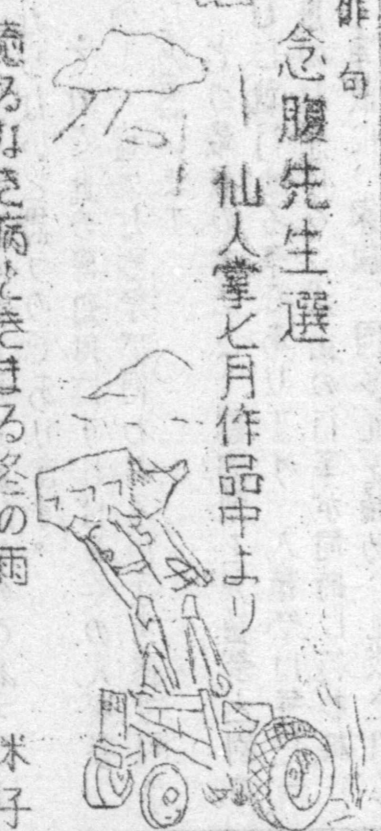 俳句
念腹先生選
―仙人掌七月作品中より
癒るなき病ときまる冬の雨 米子